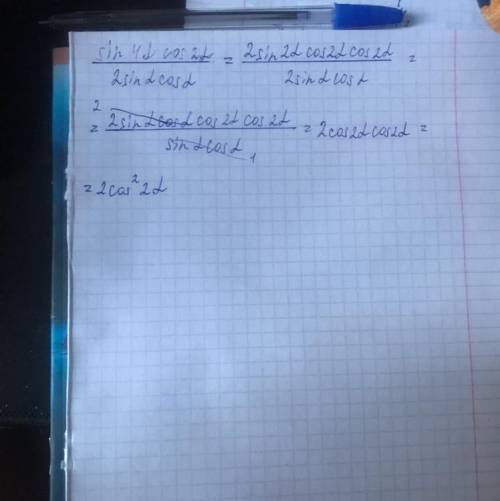 sin 4α cos 2α / 2sin α cos α = 2sin 2α cos 2α cos 2α / 2sin α cos α =
= 2 2sin α cos α cos 2α cos 2α / sin α cos α 1 = 2cos 2α cos 2α =
= 2cos² 2α